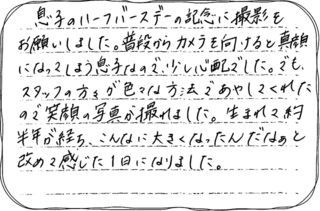 息子のハーフバースデーの記念に撮影を
お願いしました。普段からカメラを向けると真顔
になってしまう息子なので、少し心配でした。でも、
スタッフの方々が色々な方法であやしてくれた
ので笑顔の写真が撮れました。生まれて約
半年が経ち、こんなに大きくなったんだなぁと
改めて感じた1日になりました。